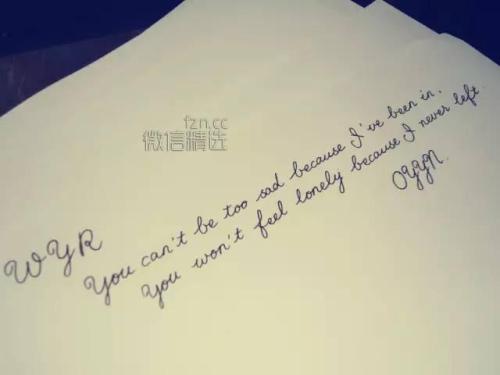 fzn.cc
微信精选
WYR
You can't be too sad because I've been in.
You won't feel lonely because I never left
OYYN.